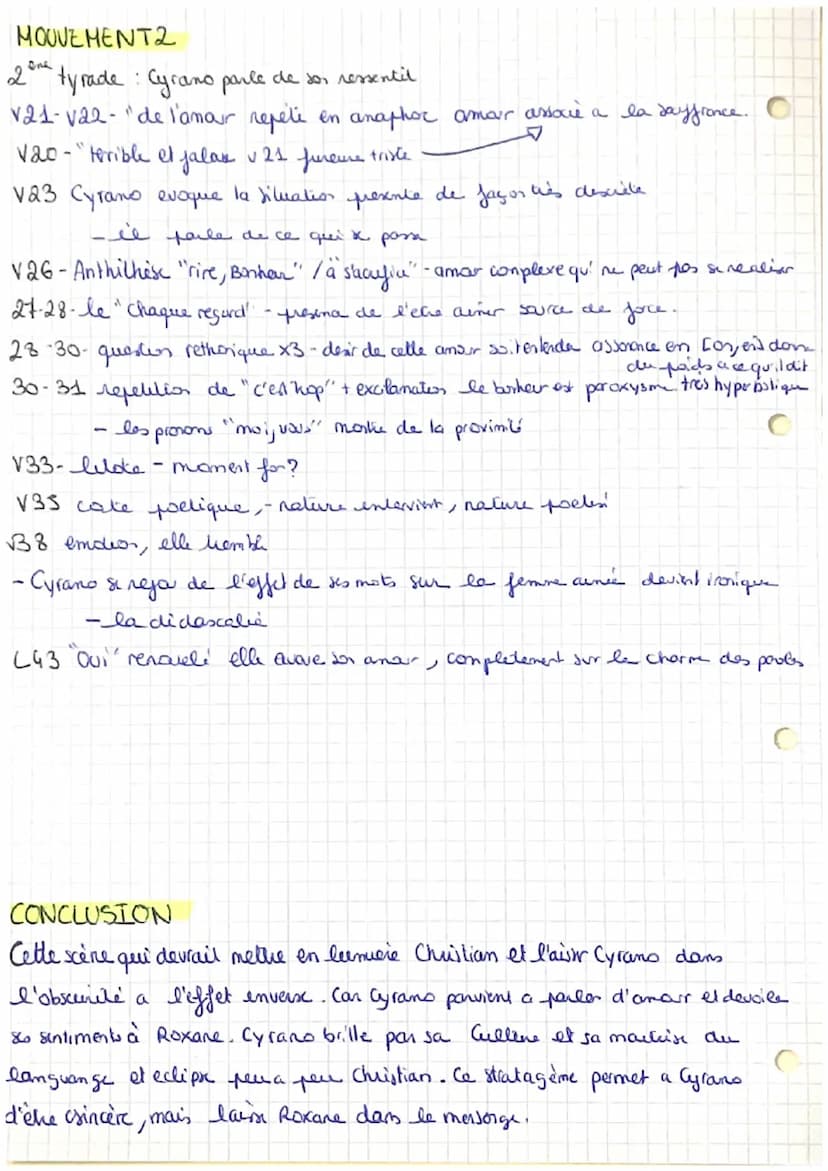 MOUVEMENT 2
2ème tyrade : Cyrano parle de son ressentil
V21-V22- "de l'amour repété en anaphore amour associé a la souffrance.
V20-"terrible et jaloux v21 fureur triste
V23 Cyrano evoque la situation presente de façon très discrète
- il parle de ce qui se passe
V26 - Anthithèse "rire, Bonheur" / "à sacrifié" - amour complexe qui ne peut pas se realiser
27-28- le "Chaque regard" - presence de l'etre aimer source de force.
28-30- question rethorique x3 - desir de cette amour assonance en donc
du poids a ce qu'il dit
30-31 repetition de "c'est trop" + exclamation le bonheur est paroxysme tres hyperbolique
- les pronoms "moi, vous" montre de la proximité
V33- - moment fort?
V35 poetique, - nature intervient, nature poetisé
V38 emotion, elle tremble
- Cyrano se rejoui de l'effet de ses mots sur la femme aimée devient ironique
- la didascalie
L43 "Oui" renouvelé elle avoue son amour, completement sur le charme des paroles
CONCLUSION
Cette scène qui devrait mettre en lumiere Christian et laisser Cyrano dans
l'obscurité a l'effet inverse. Car Cyrano parvient a parler d'amour et devoile
ses sentiments à Roxane. Cyrano brille par sa Culture et sa maitrise du
languange et eclipse peu a peu Christian. Ce stratagème permet a Cyrano
d'être sincère, mais laisse Roxane dans le mensonge.